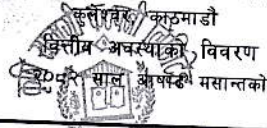 कुलेश्वर, काठमाडौ
वित्तीय अवस्थाको विवरण
साल आषाढ मसान्तको